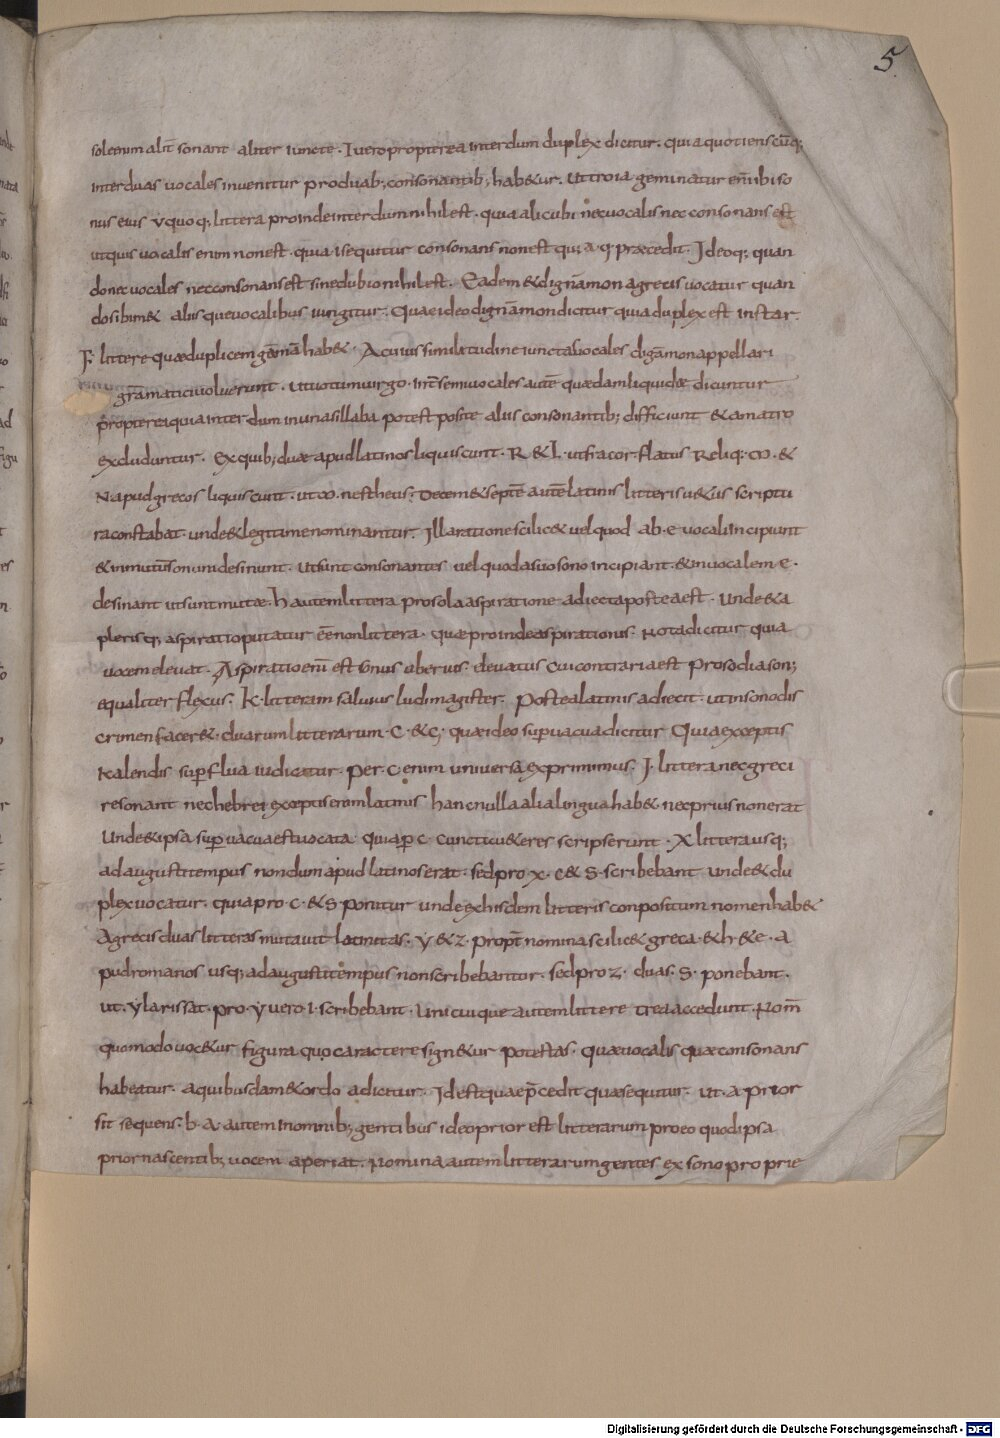 5
soleenim alit̄ sonant aliter iuncte. I vero propterea interdum duplex dicitur. quia quotienscūq;
inter duas vocales invenitur pro duab; consonantib; hab&ur. ut troia geminatur enī ibi so
nus eius v quoq; littera proinde interdum nihil est. quia alicubi nec vocalis nec consonans est
ut quis vocalis enim non est. quia i sequitur consonans non est qui a q praecedit. Ideoq; quan
do nec vocales nec consonans est sine dubio nihil est. Eadem & digāmon a grecis vocatur quan
do sibim& aliisque vocalibus iungitur. Quae ideo digāmon dicitur quia duplex est instar
F. littere quae duplicem gāmā hab&. A cuius similitudine iuncta vocales digāmon appellari
grāmatici voluerunt. ut votum virgo. Int̄ semivocales autē quaedam liquidae dicuntur
propterea quia interdum in una sillaba potest posite aliis consonantib; difficiunt & a matro
excluduntur. Ex quib; duae apud latinos liquiscunt. R & L. ut fra cor flatus Reliq: m. &
N apud grecos liquiscunt. ut m. nestheus. Decem & septē autē latinis litteris u&us scriptu
ra constabat. unde & legitime nominantur. Illa ratione scilic& vel quod ab. e. vocali incipiunt
& in mutūsonum desinunt. ut sunt consonantes vel quod a suo sono incipiant. & in vocalem e.
desinant ut sunt mutae. h autem littera pro sola aspiratione adiecta postea est. Unde & a
plerisq; aspiratio putatur eē non littera. quae proinde aspirationis. Nota dicitur quia
vocem elevat. Aspiratio enī est sonus uberius elevatus cui contraria est prosodia son;
equaliter flexus. K. litteram salvius ludimagister. Postea latinis adiecit. ut in sono dis
crimen facer&. duarum litterarum. C. & q; quae ideo supvacua dicitur Quia exceptis
kalendis supflua iudicatur. per. c. enim universa exprimimus. I. littera nec greci
resonant nec hebrei exceptis enim latinis hanc nulla alia lingua hab& nec prius non erat
Unde & ipsa supvacua est vocata. quia p c. cuncti v&eres scripserunt. X littera usq;
ad augusti tempus nondum apud latinos erat. sed pro. x. c & s. scribebant unde & du
plex vocatur. quia pro. c. & s. ponitur unde ex hisdem litteris conpositum nomen hab&
A grecis duas litteras mutavit latinitas. y & z. propt̄ nomina scilic& greca. & h & e. a
pud romanos usq; ad augusti tempus non scribebantur. sed pro z. duas. S. ponebant.
ut. ylarissat. pro. y vero. i. scribebant. Unicuique autem littere trea accedunt. Nom̄
quomodo voc&ur figura quo caractere sign&ur potestas. quae vocalis quae consonans
habeatur. a quibusdam & ordo adicitur. Id est quae p̄cedit quae sequitur. ut. a prior
sit sequens. b. A. autem in omnib; gentibus ideo prior est litterarum pro eo quod ipsa
prior nascentib; vocem aperiat. Nomina autem litterarum gentes ex sono proprie
Digitalisierung gefördert durch die Deutsche Forschungsgemeinschaft - DFG